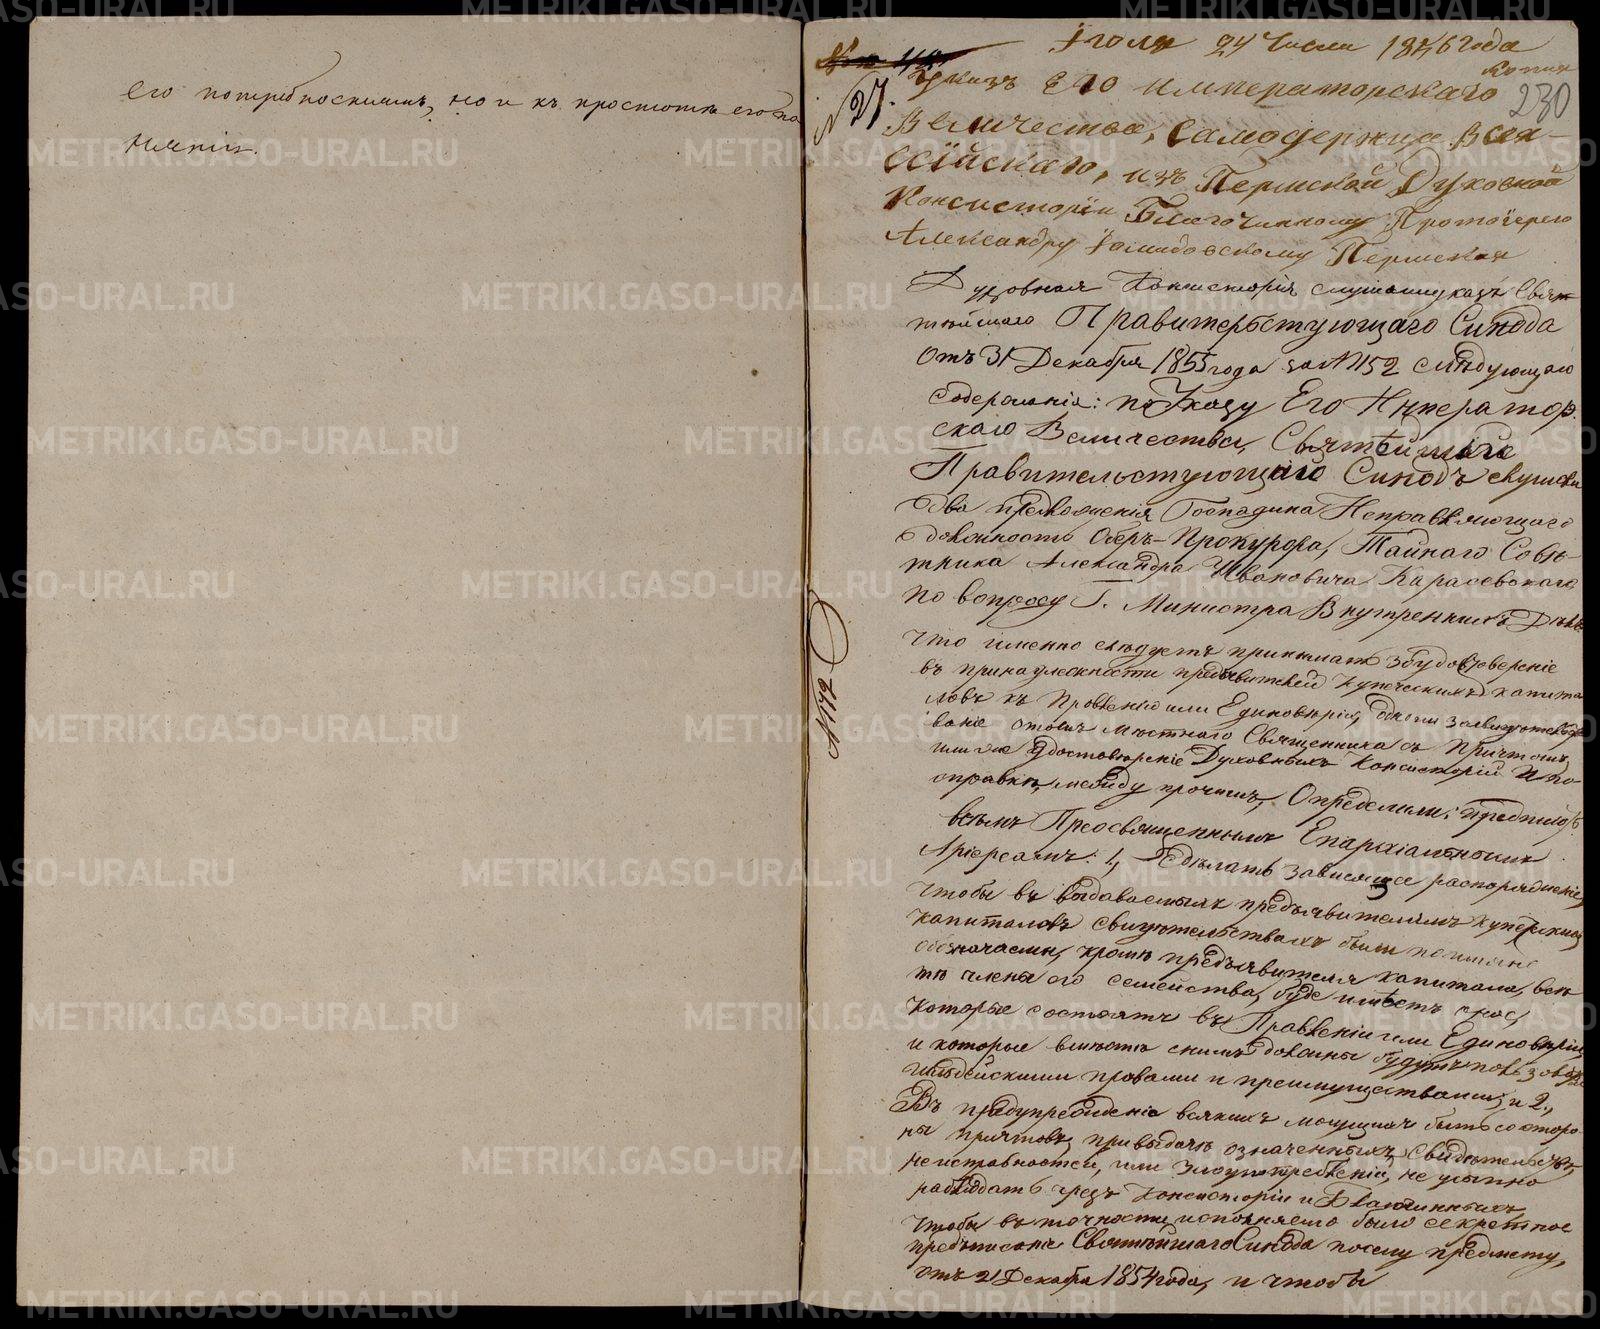 его потребностямъ, но и къ простотѣ его по
нятій.
Іюля 24 Числа 1856 года
Копия
230
№ 27.
Указъ Его Императорскаго
Величества, Самодержца Всеро-
ссійскаго, изъ Пермской Духовной
Консисторіи Благочинному Протоіерею
Александру Пермская
Духовная Консисторія слушали указъ Свят-
тѣйшаго Правительствующаго Синода
отъ 31 Декабря 1855 года за № 1152 слѣдующаго
содержанія: по Указу Его Император.
скаго Величества, Святѣйшаго
Правительствующаго Синодъ слушали
два предложенія Господина Исправляющаго
должность Оберъ-Прокурора, Тайнаго Совѣ-
тника Александра Ивановича Карасевскаго,
по вопросу Г. Министра Внутреннихъ Дѣлъ
что именно слѣдуетъ принимать
въ принадлежности предъявителей купеческихъ капита
ловъ къ Провленію или Единовѣрію, одноли засвидѣтельство
ваніе отомъ мѣстнаго Священника съ Причтомъ,
или же Удостовѣреніе Духовныхъ Консисторій И по
справкѣ, между прочимъ, Опредѣлили: предписать
всѣмъ Преосвященнымъ Епархіальнымъ
Архіереямъ: 1, Сдѣлать зависящее распоряженіе,
чтобы въ выдаваемыхъ предъявителямъ купеческихъ
капиталовъ свидѣтельствахъ были поимянно
обозначаемы, кромѣ предъявителя капитала, всѣ
тѣ члены его семейства, буде имѣетъ оное,
которые состоятъ въ Правленіи или Единовѣріи,
и которые вмѣстѣ снимъ должны будутъ пользоваться
гильдейскими правами и преимуществами, и 2.,
Въ предупрежденіе всякихъ могущихъ быть со сторо-
ны причтовъ, при выдачѣ означенныхъ Свидѣтельствъ,
неисправностей, или злоупотребленій, не усыпно
наблюдать чрезъ Консисторіи и Благочинныхъ
чтобы въ точности исполняемо было секретное
предписаніе Святѣйшаго Синода посему предмету,
отъ 21 Декабря 1854 года, и чтобы
№ 1172
METRIKI.GASO-URAL.RU